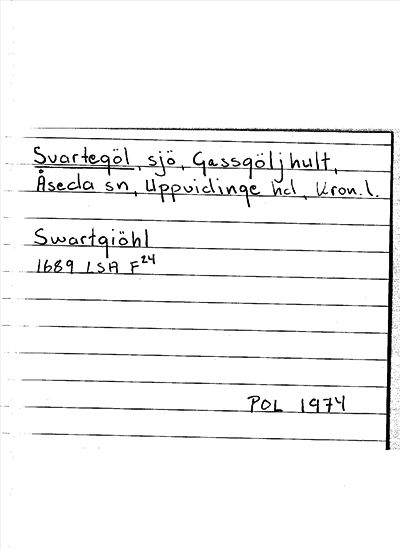 Svartegöl, sjö, Gassgöljhult,
Åseda sn, Uppvidinge hd, Kron. l.
Swartgiöhl
1689 LSA F24
POL 1974